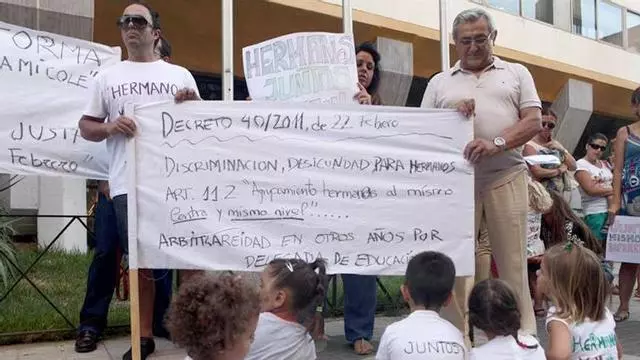 FORMA
A MI COLE"
JUSTI
Febrero"
HERMANO
HERMANOS
JUNTOS
DECRETO 40/2011, de 22 Febrero
DISCRIMINACION, DESIGUNDAD, PARA HERMANOS
ART. 11.2 "Agupamiento hermanos al mismo
Centro y mismo nivel"......
ARBITRAREIDAD EN OTROS AÑOS POR
DELEGADA DE EDUCACIÓN
JUNTOS
JUNTOS